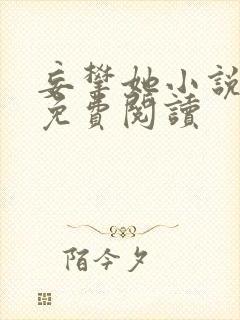 妄攀她小說
免費閱讀
陌今夕